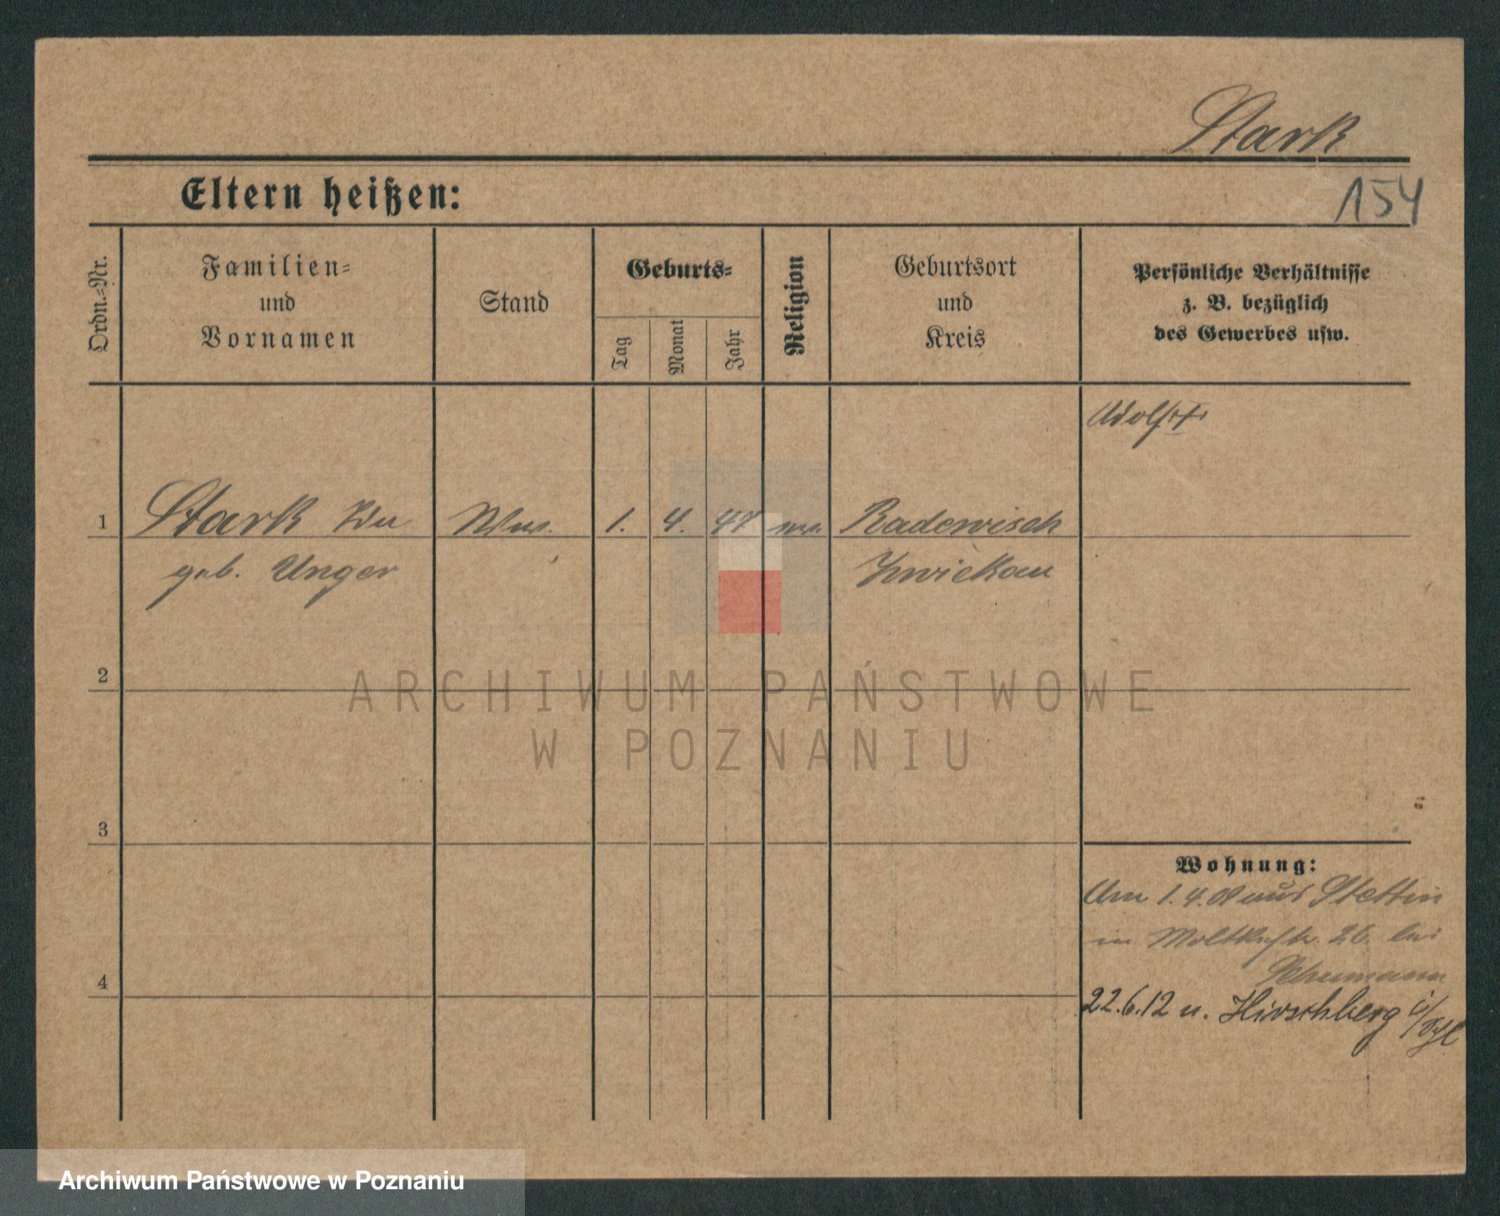 Stark
Eltern heißen:
154
Ordn.-Nr.
Familien-
und
Vornamen
Stand
Geburts-
Tag
Monat
Jahr
Religion
Geburtsort
und
Kreis
Persönliche Verhältnisse
z. B. bezüglich
des Gewerbes usw.
Adolf †
1
Stark
Ww.
1.
4.
48
ev.
Radewisch
geb. Unger
Zwickau
2
ARCHIWUM PAŃSTWOWE
W POZNANIU
3
Wohnung:
Am 1.4.08 aus Stettin
in Moltkestr. 26 bei
Schumann
4
22.6.12 n. Hirschberg i/
Archiwum Państwowe w Poznaniu